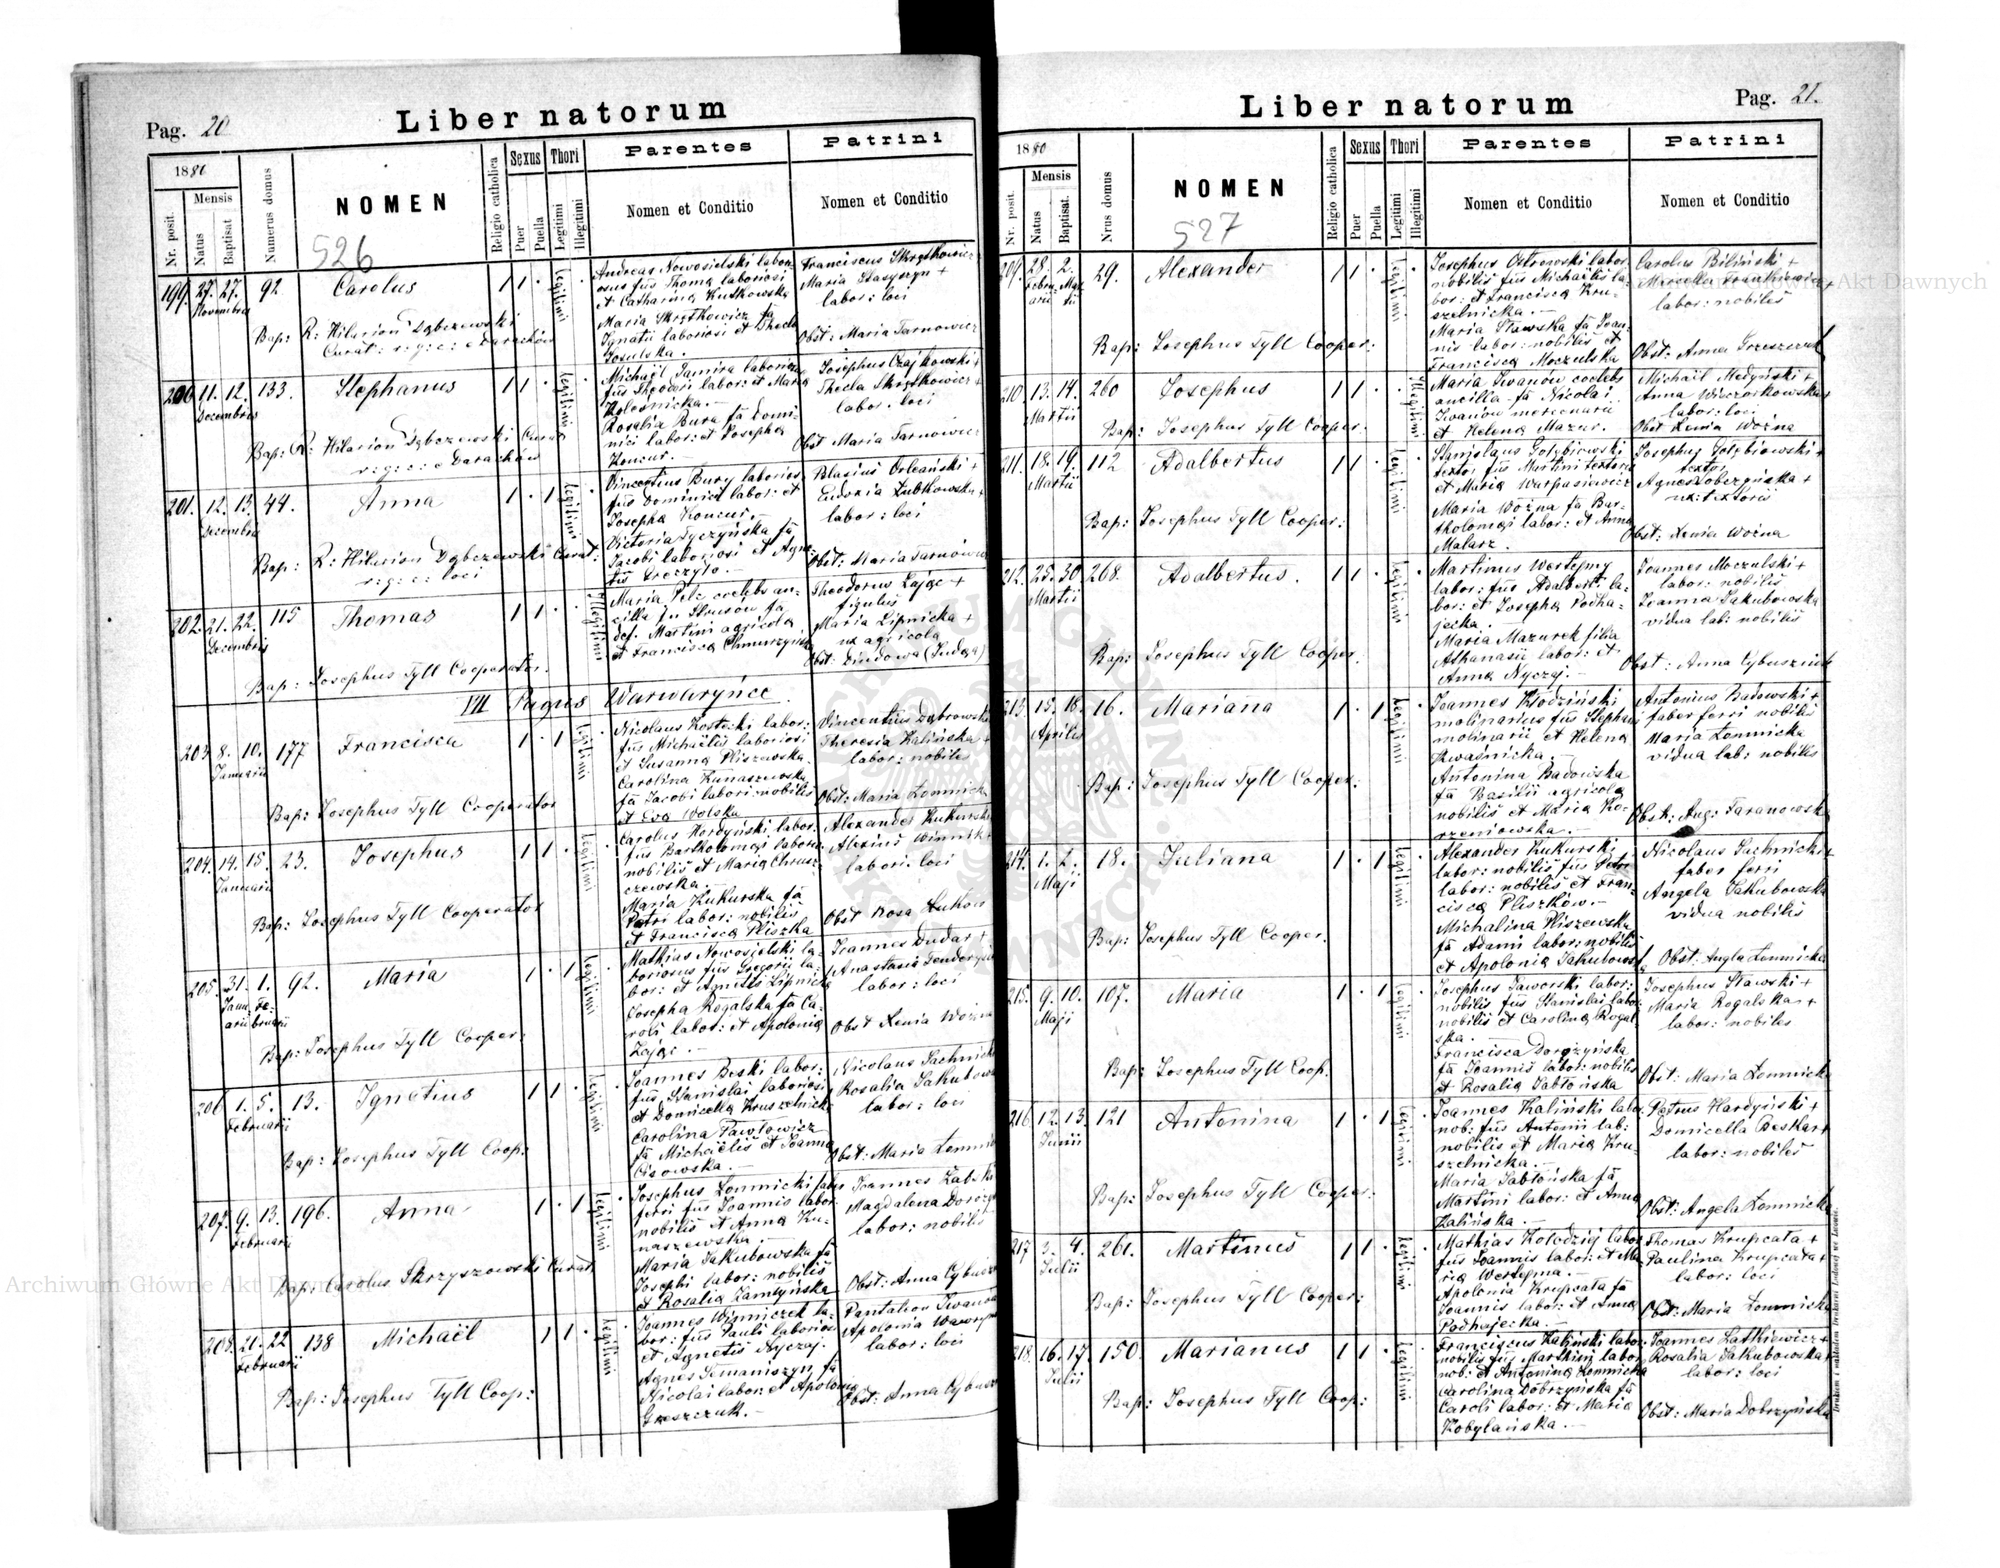 Pag. 20
Liber natorum
1880
Mensis
Nr. posit.
Natus
Baptisat.
Numerus domus
NOMEN
526
Religio catholica
Sexus
Puer
Puella
Thori
Legitimi
Illegitimi
Parentes
Nomen et Conditio
Patrini
Nomen et Conditio
199. 27. 27. 92. Carolus 1 1 ·
Novembris
Legitimi
Andreas Nowosielski labori-
osus fũs Thoma laboriosi
et Catharina Kutkowska
Maria Skrętkowicz fã
Ignatii laboriosi et Thecla
Franciscus Skrętkowicz
Maria Stasyszyn +
labor: loci
Obst: Maria Tarnowicz
Bap: R: Hilarion Dąbczewski
Curat: r: g: c: e Darachów
200 11. 12. 133. Stephanus 1 1 ·
Decembris
Legitimi
Michaël Jamira laborios
fũs Theodori labor: et Maria
Kolesnicka. —
Rosalia Bura fã Domi-
nici labor: et Josepha
Koncur. —
Josephus Czajkowski +
Thecla Skrętkowicz +
labor. loci
Obst Maria Tarnowicz
Bap: R: Hilarion Dąbczewski Curat
r: g: c: e Darachów
201. 12. 13. 44. Anna 1 · 1
Decembris
Legitimi
Vincentius Bury laborios
fũs Dominici labor: et
Josepha Koncur. —
Victoria Tyczyńska fã
Jacobi laboriosi et Agne-
tis Greczyło. —
Blasius Orleański +
Eudoxia Lubkowska +
labor: loci
Obst: Maria Tarnowicz
Bap: R: Hilarion Dąbczewski Curat:
r: g: c: loci
202. 21. 22. 115 Thomas 1 1 ·
Decembris
Illegitimi
Maria Pelc coelebs an-
cilla in Strusów fã
def. Martini agricola
et Francisca Chmurzyńska
Theodorus Zając +
figulus
Maria Lipnicka +
ux agricola
Bap: Josephus Tyll Cooperator.
VII Pagus Warwaryńce.
203 8. 10. 177 Francisca 1 · 1
Januarii
Legitimi
Nicolaus Kostecki labor:
fũs Michaëlis laboriosi
et Susanna Pliszewska
Carolina Kunaszewska
fã Jacobi labori: nobilis
et Eva Wolska
Vincentius Dąbrowski
Theresia Kalińska +
labor: nobile
Obst: Maria Łomnicka
Bap: Josephus Tyll Cooperator
204. 14. 15. 23. Josephus 1 1 ·
Januarii
Legitimi
Carolus Hordyński labor:
fũs Bartholomaei laborio
nobilis et Maria Chrusz-
czewska
Maria Kukurska fã
Petri labor: nobilis
et Francisca Pliszka
Alexander Kukurski
Alexius Winnik
labori. loci
Obst Rosa Lukow
Bap: Josephus Tyll Cooperator
205. 31. 1. 92. Maria 1 · 1
Janu Fe-
arii bruarii
Legitimi
Mathias Nowosielski la-
boriosus fũs Gregorii la-
bor: et Agnetis Lipnicka
Josepha Rogalska fã Ca-
roli labor: et Apolonia
Zając. —
Joannes Dudar +
labor: loci
Obst Xenia Woźna
Bap: Josephus Tyll Cooper:
206 1. 5. 13. Ignatius 1 1 ·
Februarii
Legitimi
Joannes Beski labor:
fũs Stanislai laboriosi
et Domicella Kruszelnicka
Carolina Pawłowicz
fã Michaëlis et Joanna
Cisowska. —
Nicolaus Sachnicki
Rosalia Jakubowska
labor: loci
Obst: Maria Łomnicka
Bap: Josephus Tyll Coop:
207. 9. 13. 196. Anna 1 · 1
Februarii
Legitimi
Josephus Łomnicki faber
ferri fũs Joannis labor:
nobilis et Anna Ku-
naszewska. —
Maria Jakubowska fã
Josephi labor: nobilis
et Rosalia Zamłyńska
Magdalena Doroży
labor: nobilis
Obst: Anna Cybu
Bap: Carolus Skrzyszowski Curat.
208. 21. 22 138 Michaël 1 1 ·
Februarii
Legitimi
Joannes Winniczek la-
bor: fũs Pauli laboriosi
et Agnetis Nyczaj.
Agnes Semaniszyn fã
Nicolai labor: et Apolonia
Greszczuk. —
Pantalion Iwanów
Apolonia Wawryn
labor: loci
Obst: Anna Cybu
Bap: Josephus Tyll Coop:
Pag. 21.
Liber natorum
1880
Mensis
Nr. posit.
Natus
Baptisat.
Nrus domus
NOMEN
527
Religio catholica
Sexus
Puer
Puella
Thori
Legitimi
Illegitimi
Parentes
Nomen et Conditio
Patrini
Nomen et Conditio
209. 28. 2. 29. Alexander 1 1 ·
Febru- Mar-
arii tii
Legitimi
Josephus Ostrowski labor.
nobilis fũs Michaëlis la-
bor: et Francisca Kru-
szelnicka. —
Maria Stawska fã Joan-
nis labor: nobilis et
Francisca Moczulska
Carolus Biliński +
Marcella Frankiewicz +
labor: nobiles
Obst: Anna Greszczuk
Bap: Josephus Tyll Cooper:
210. 13. 14. 260 Josephus 1 1 ·
Martii
Illegitimi
Maria Iwanów coelebs
ancilla fã Nicolai
Iwanów mercenarii
et Helena Mazur. —
Michaël Medyński +
Anna Wieczorkowska +
labor: loci
Obst Xenia Woźna
Bap: Josephus Tyll Cooper.
211. 18. 19. 112 Adalbertus 1 1 ·
Martii
Legitimi
Stanislaus Gołębiowski
textor fũs Martini textoris
et Maria Warpasiewicz
Maria Woźna fã Bar-
tholomaei labor: et Anna
Malarz.
Josephus Gołębiowski +
textor
Agnes Dobczyńska +
ux: textoris
Obst: Xenia Woźna
Bap: Josephus Tyll Cooper:
212. 25. 30. 268. Adalbertus. 1 1 ·
Martii
Legitimi
Martinus Wertejny
labor: fũs Adalberti la-
bor: et Josepha Podha-
jecka. —
Maria Mazurek filia
Athanasii labor: et
Anna Nyczaj.
Joannes Moczulski +
labor: nobilis
Joanna Jakubowska
vidua lab: nobilis
Obst: Anna Cybuszińska
Bap: Josephus Tyll Cooper.
213. 15. 18. 16. Mariana 1 · 1
Aprilis
Legitimi
Joannes Kłodziński
molinarius fũs Stephani
molinarii et Helena
Kwaśnicka. —
Antonina Badowska
fã Basilii agricola
nobilis et Maria Ko-
rzeniowska. —
Antonius Badowski +
faber ferri nobilis
Maria Łomnicka
vidua lab: nobilis
Obst: Ang: Taranowska
Bap: Josephus Tyll Cooper:
214. 1. 2. 18. Juliana 1 · 1
Maji
Legitimi
Alexander Kukurski
labor: nobilis fũs Petri
labor: nobilis et Fran-
cisca Pliszków. —
Michalina Pliszewska
fã Adami labor: nobilis
et Apolonia Jakubowska
Nicolaus Sachnicki +
faber ferri
Angela Jakubowska
vidua nobilis
Obst: Angla Łomnicka
Bap: Josephus Tyll Cooper.
215. 9. 10. 107. Maria 1 · 1
Maji
Legitimi
Josephus Jaworski labor:
nobilis fũs Stanislai labor:
nobilis et Carolina Rogal-
ska. —
Francisca Dorożyńska
fã Joannis labor: nobilis
et Rosalia Jabłońska
Josephus Stawski +
Maria Rogalska +
labor: nobiles
Obst: Maria Łomnicka
Bap: Josephus Tyll Coop.
216. 12. 13. 121 Antonina 1 · 1
Junii
Legitimi
Joannes Kaliński labor.
nob: fũs Antonii lab:
nobilis et Maria Kru-
szelnicka. —
Maria Jabłońska fã
Martini labor: et Anna
Kalińska. —
Petrus Hordyński +
Domicella Beska +
labor: nobiles
Obst: Angela Łomnicka
Bap: Josephus Tyll Cooper:
217 3. 4. 261. Martinus 1 1 ·
Julii
Legitimi
Mathias Kołodziej labor
fũs Joannis labor: et Ma-
ria Wertejna. —
Apolonia Krupcata fã
Joannis labor: et Anna
Podhajecka. —
Thomas Krupcata +
Paulina Krupcata +
labor: loci
Obst: Maria Łomnicka
Bap: Josephus Tyll Cooper:
218. 16. 17. 150. Marianus 1 1 ·
Julii
Legitimi
Franciscus Kaliński labor:
nobilis fũs Martini labor
nob: et Antonina Łomnicka
Carolina Dobrzyńska fã
Caroli labor: et Maria
Kobylańska. —
Joannes Latkiewicz +
Rosalia Jakubowska +
labor: loci
Obst: Maria Dobrzyńska
Bap: Josephus Tyll Coop:
Drukiem i nakładem Drukarni Ludowej we Lwowie.
Archiwum Główne Akt Dawnych
Archiwum Główne Akt Dawnych
ARCHIWUM GŁÓWNE AKT DAWNYCH